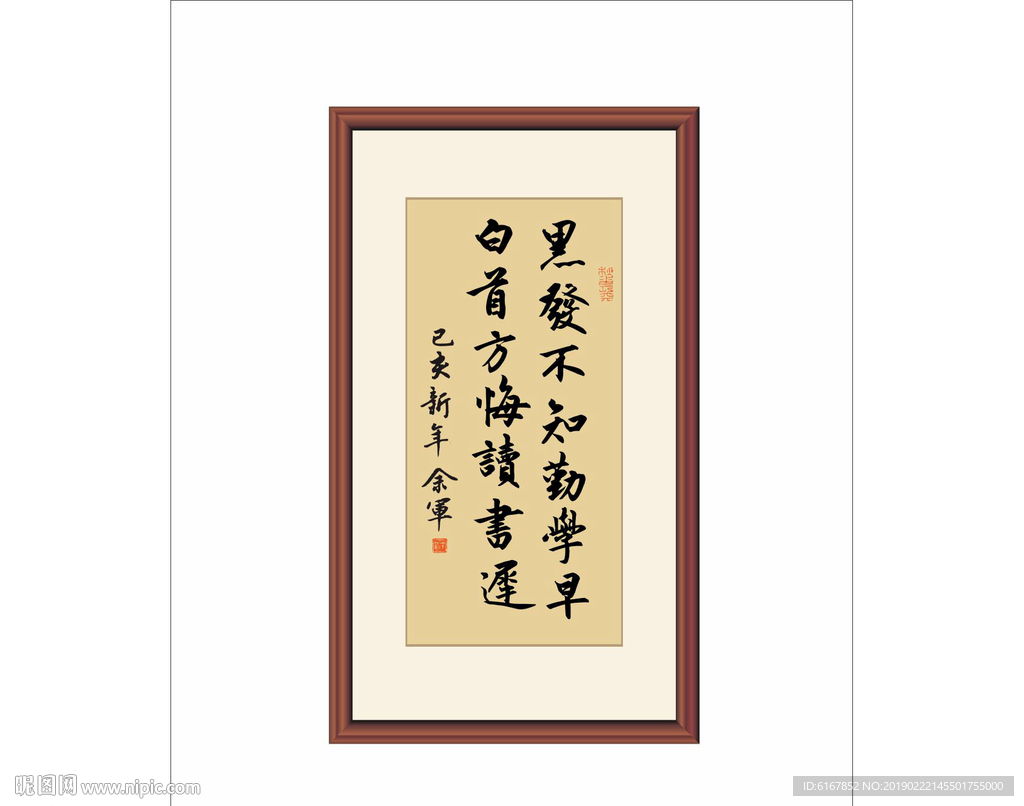 黑發不知勤學早
白首方悔讀書遲
己亥新年 余軍
昵图网 www.nipic.com
ID:6167852 NO:20190222145501755000